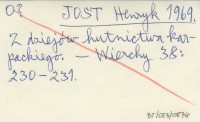 O? JOST Henryk 1969.
Z dziejów hutnictwa kar-
packiego. — Wierchy 38:
230-231.